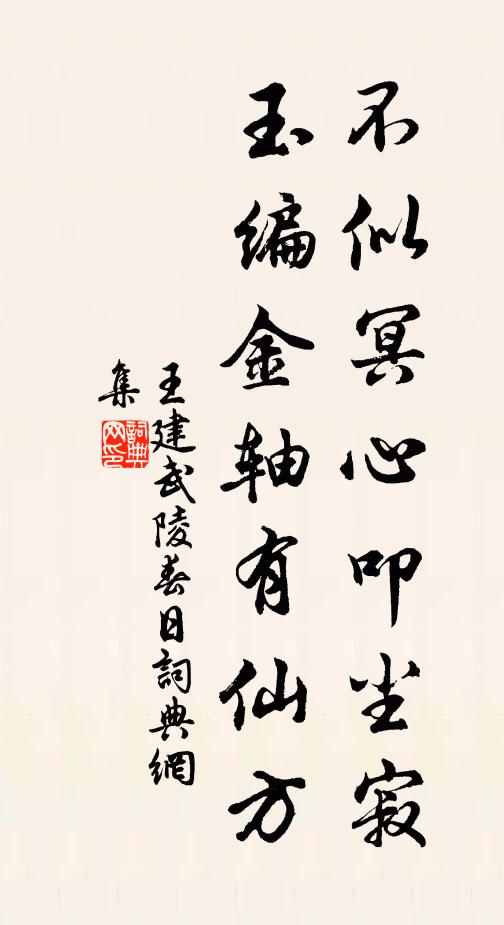 不似冥心叩坐寂
玉编金轴有仙方
王建武陵春日詞典網
集
詞典
网印